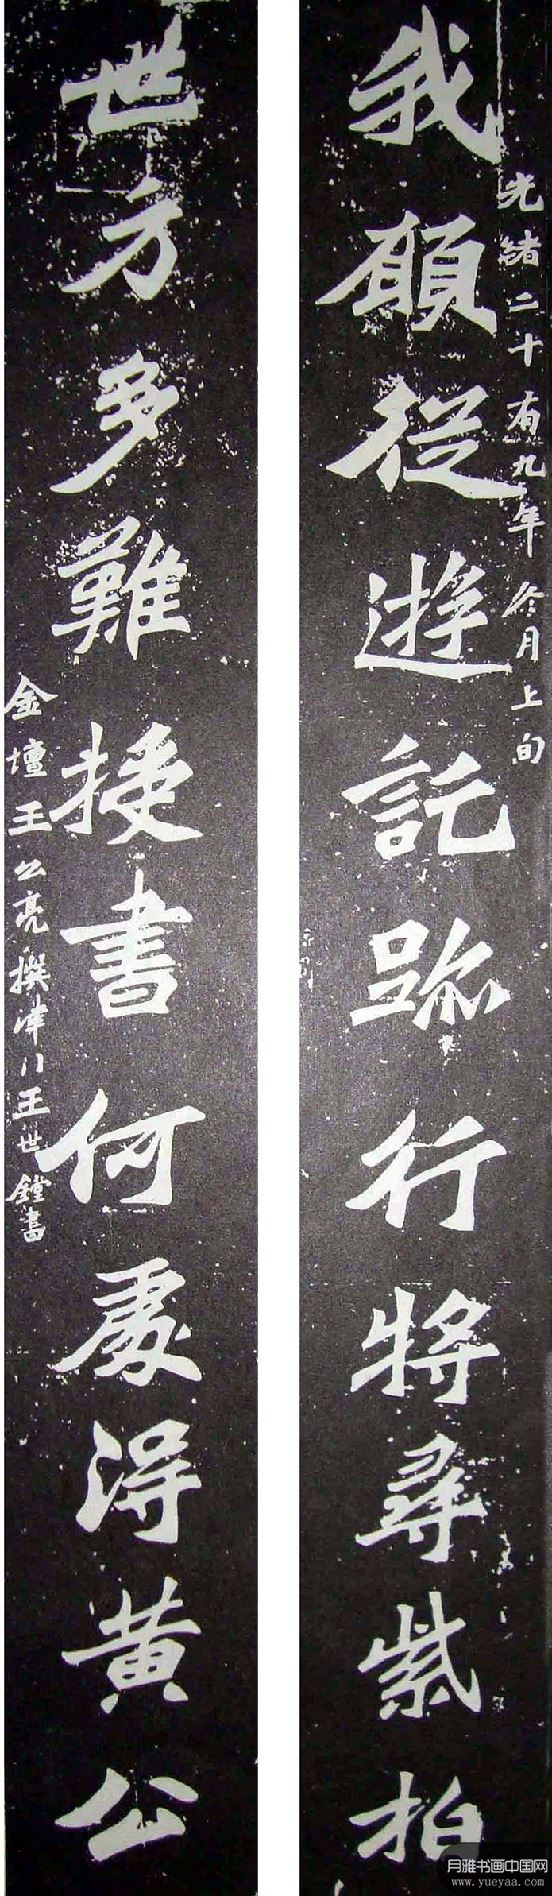 光緒二十有九年冬月上旬
我願從遊託跡行將尋紫柏
世方多難授書何處得黃公
金壇王公亮撰津門王世鏜書
月雅书画中国网
www.yueyaa.com